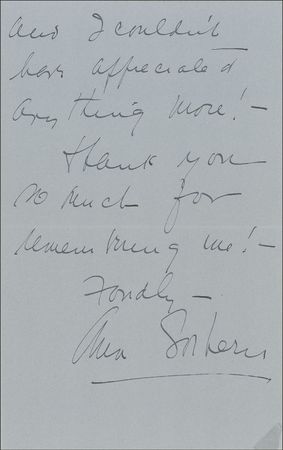 and I couldn't
have appreciated
anything more! –
Thank you
so much for
remembering me! –
Fondly –
Ann Sothern